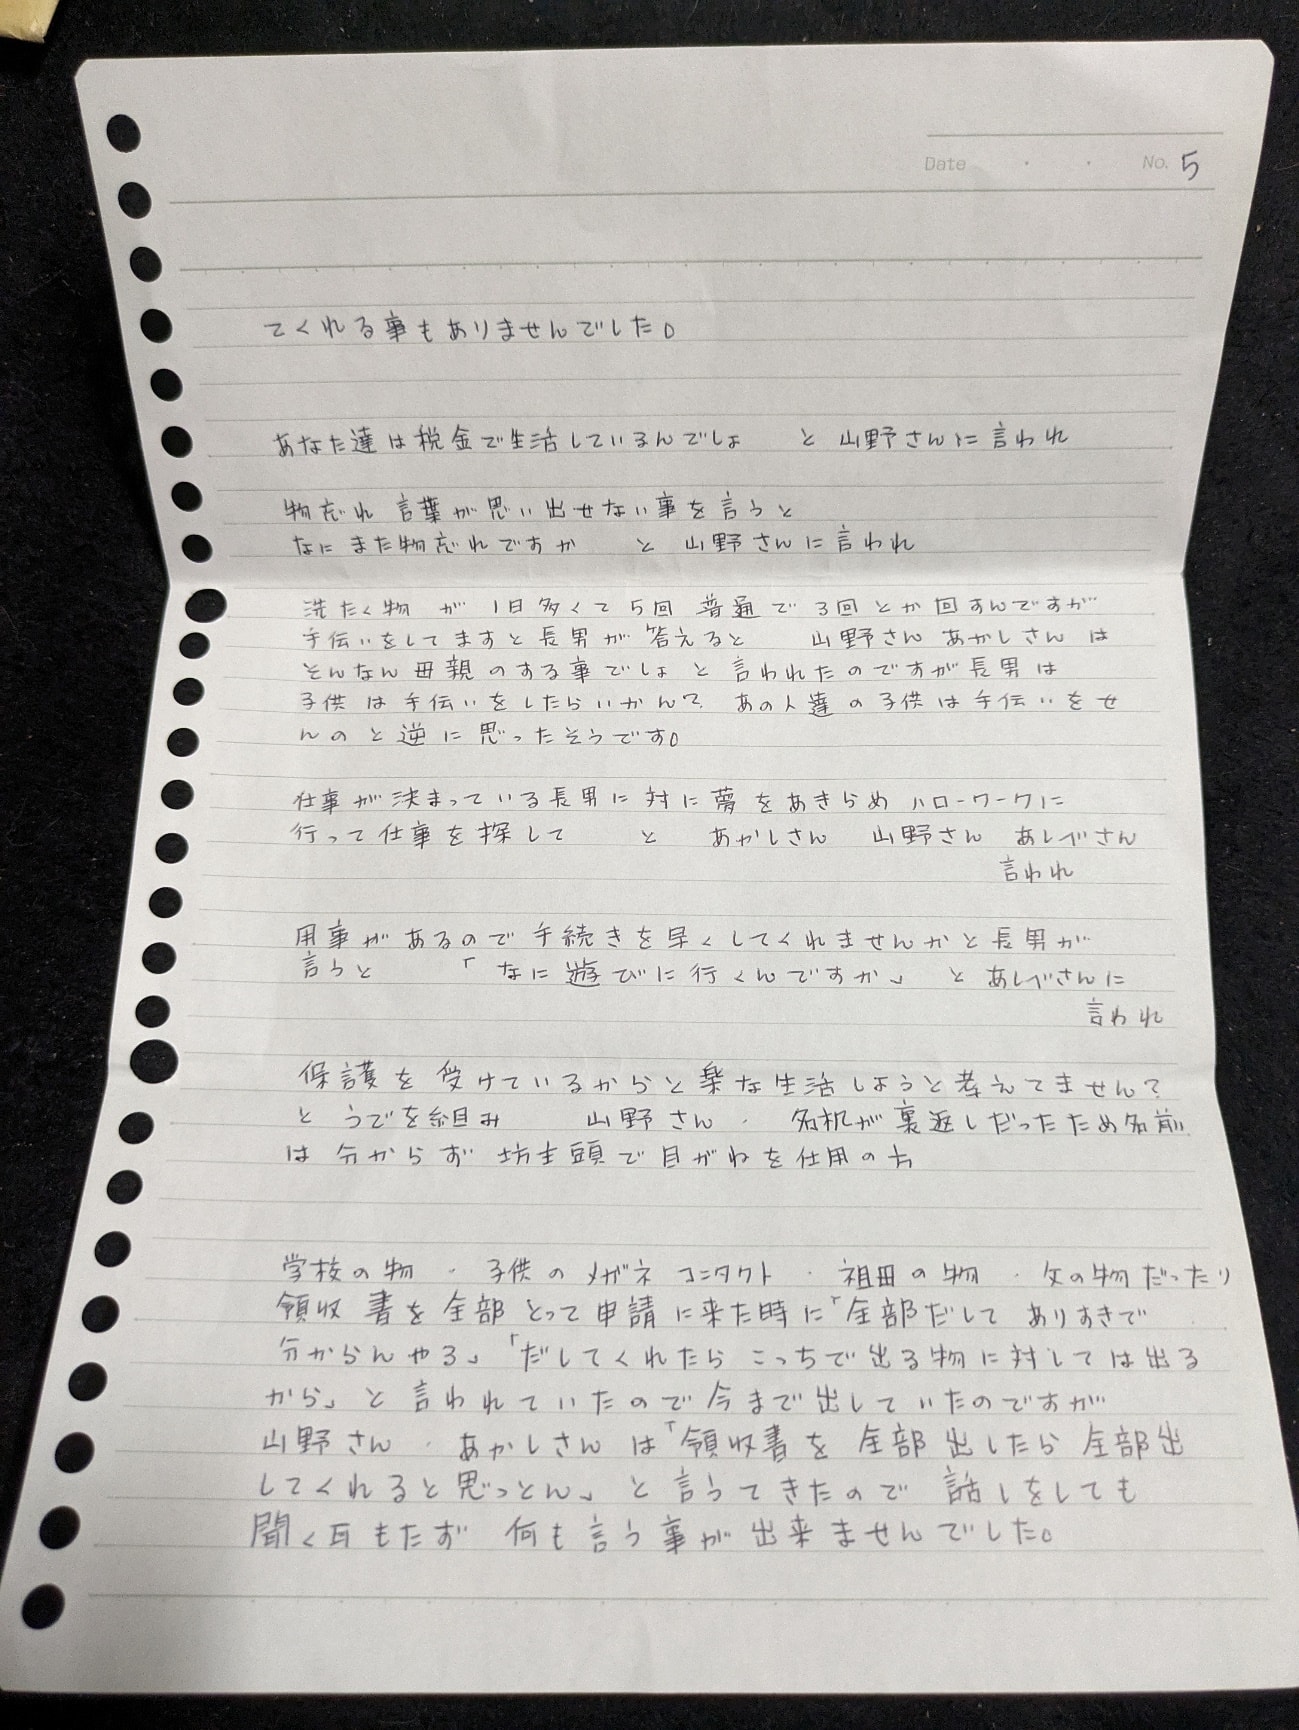 Date ・ ・ No. 5
てくれる事もありませんでした。
あなた達は税金で生活しているんでしょ と 山野さんに言われ
物忘れ 言葉が思い出せない事を言うと
なに また物忘れですか と 山野さんに言われ
洗たく物 が 1日多くて5回 普通で3回とか回すんですが
手伝いをしてますと長男が答えると 山野さん あかしさん は
そんなん母親のする事でしょ と言われたのですが長男は
子供は手伝いをしたらいかん? あの人達の子供は手伝いをせ
んのと逆に思ったそうです。
仕事が決まっている長男に対に夢をあきらめ ハローワークに
行って仕事を探して と あかしさん 山野さん あしべさん
言われ
用事があるので手続きを早くしてくれませんかと長男が
言うと 「なに遊びに行くんですか」 と あしべさんに
言われ
保護を受けているからと楽な生活しようと考えてません?
と うでを組み 山野さん ・ 名札が裏返しだったため名前
は分からず 坊主頭で目がねを仕用の方
学校の物 ・ 子供のメガネ コンタクト ・ 祖母の物 ・ 父の物だったり
領収書を全部とって申請に来た時に「全部だして ありすぎで
分からんやろ」「だしてくれたら こっちで出る物に対しては出る
から」と言われていたので今まで出していたのですが
山野さん ・ あかしさんは「領収書を全部出したら全部出
してくれると思っとん」と言うてきたので 話しをしても
聞く耳もたず 何も言う事が出来ませんでした。